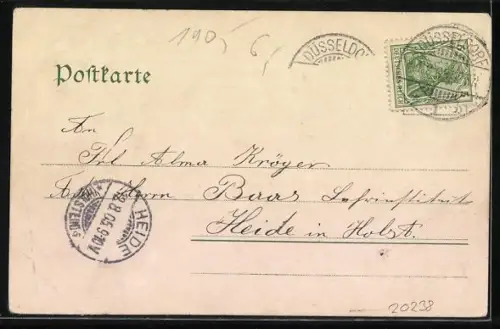 1905 6,
DÜSSELDO
DÜSSELDORF
Postkarte
An
Frl Alma Kröger
Herrn Baas Lehrinstitut
Heide in Holst.
HEIDE
(HOLSTEIN)
8.05.9-10V
20238